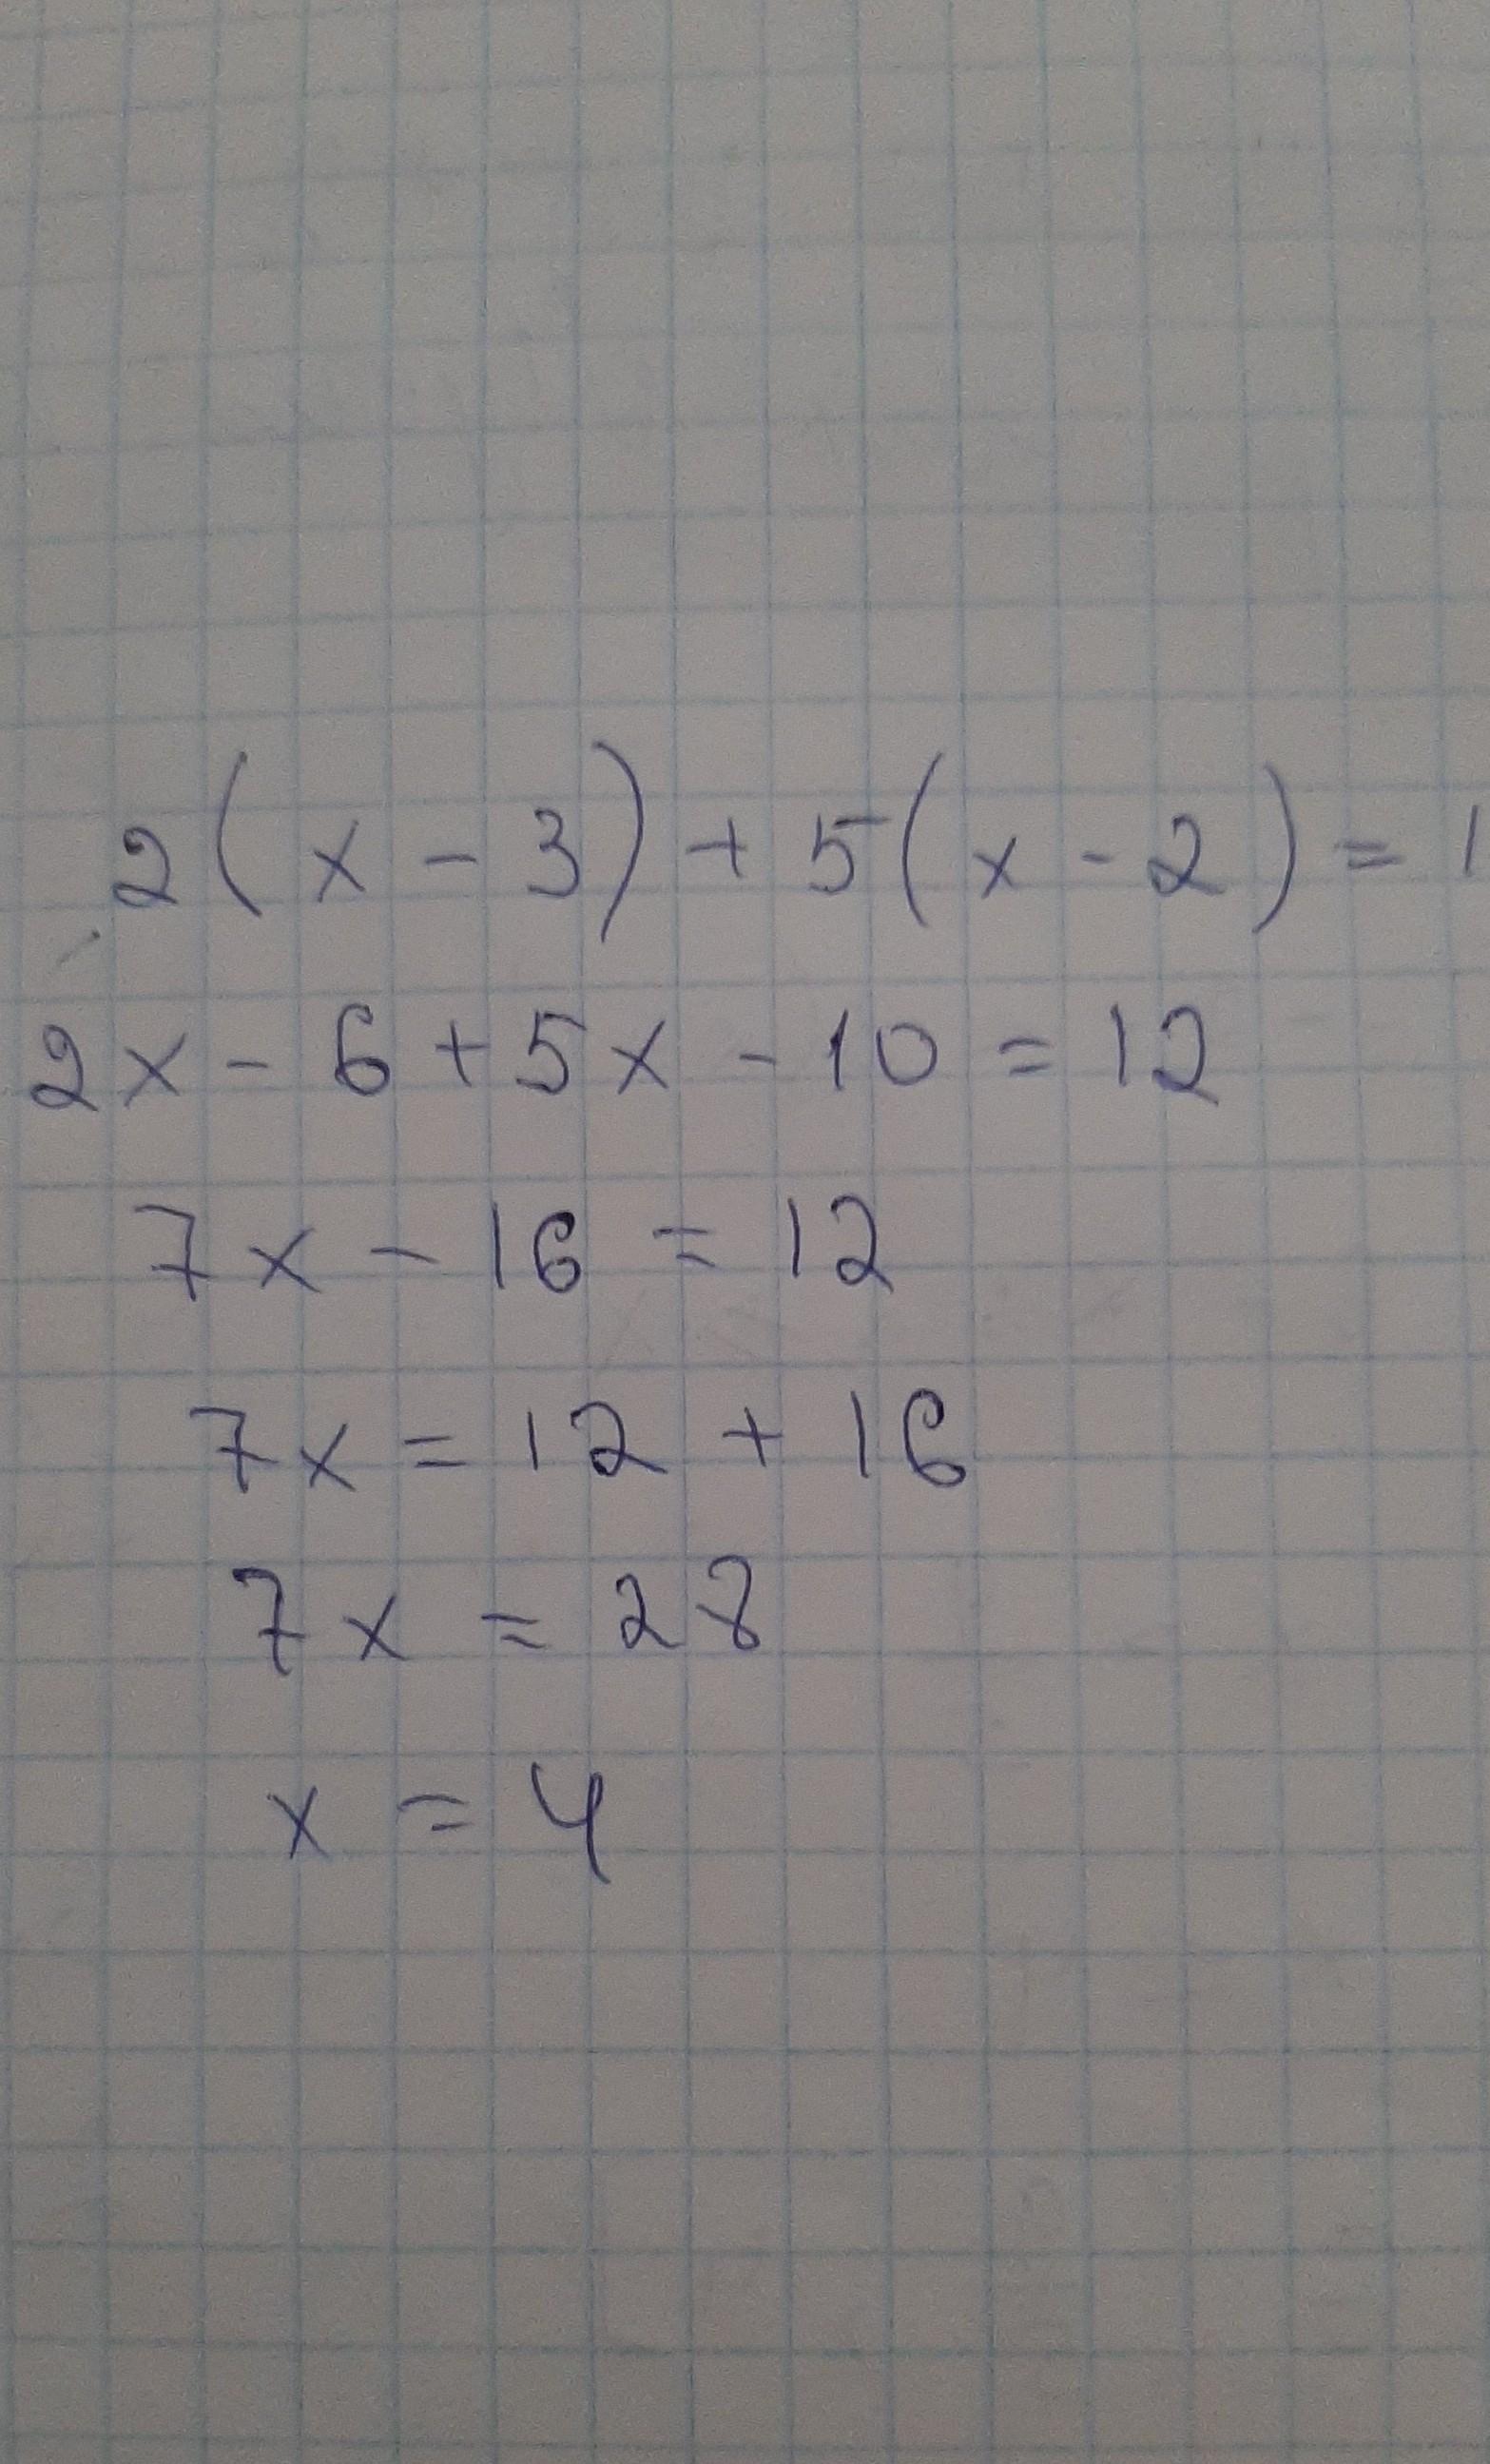 2(x-3)+5(x-2)=1
2x-6+5x-10=12
7x-16=12
7x=12+16
7x=28
x=4